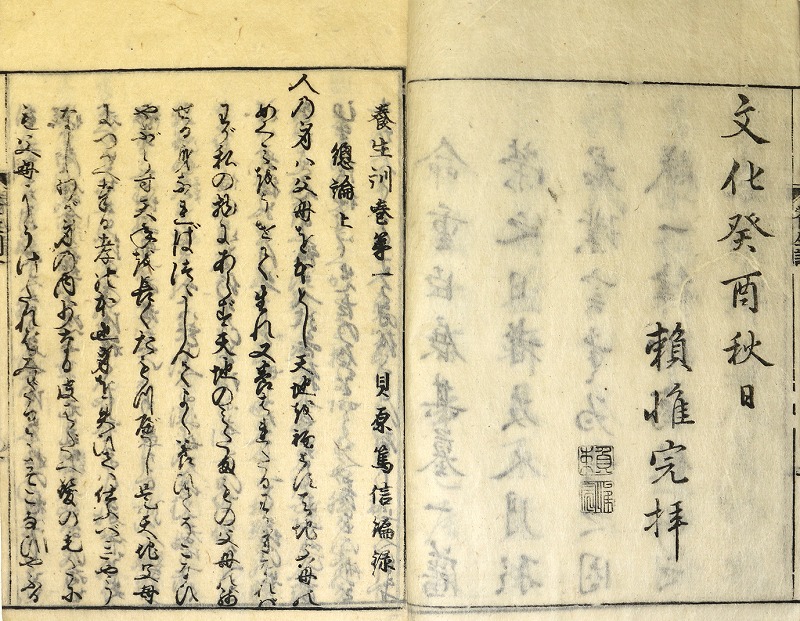 文化癸酉秋日
賴惟完拝
養生訓巻第一　貝原篤信編録
總論上
人の身ハ父母を本とし天地を初とす天地父母の
めぐミをうけて生れ又養はれたるわが身なれば
わが私の物にあらず天地のミたまもの父母の残
せる身なればつゝしんでよく養ひてそこなひ
やぶらず天年を長くたもつべし是天地父母
につかへ奉る孝の本也身を失ひては仕ふべきやう
なしわが身の内少なる皮はだへ髪の毛だに
も父母にうけたればみだりにそこなひやぶる